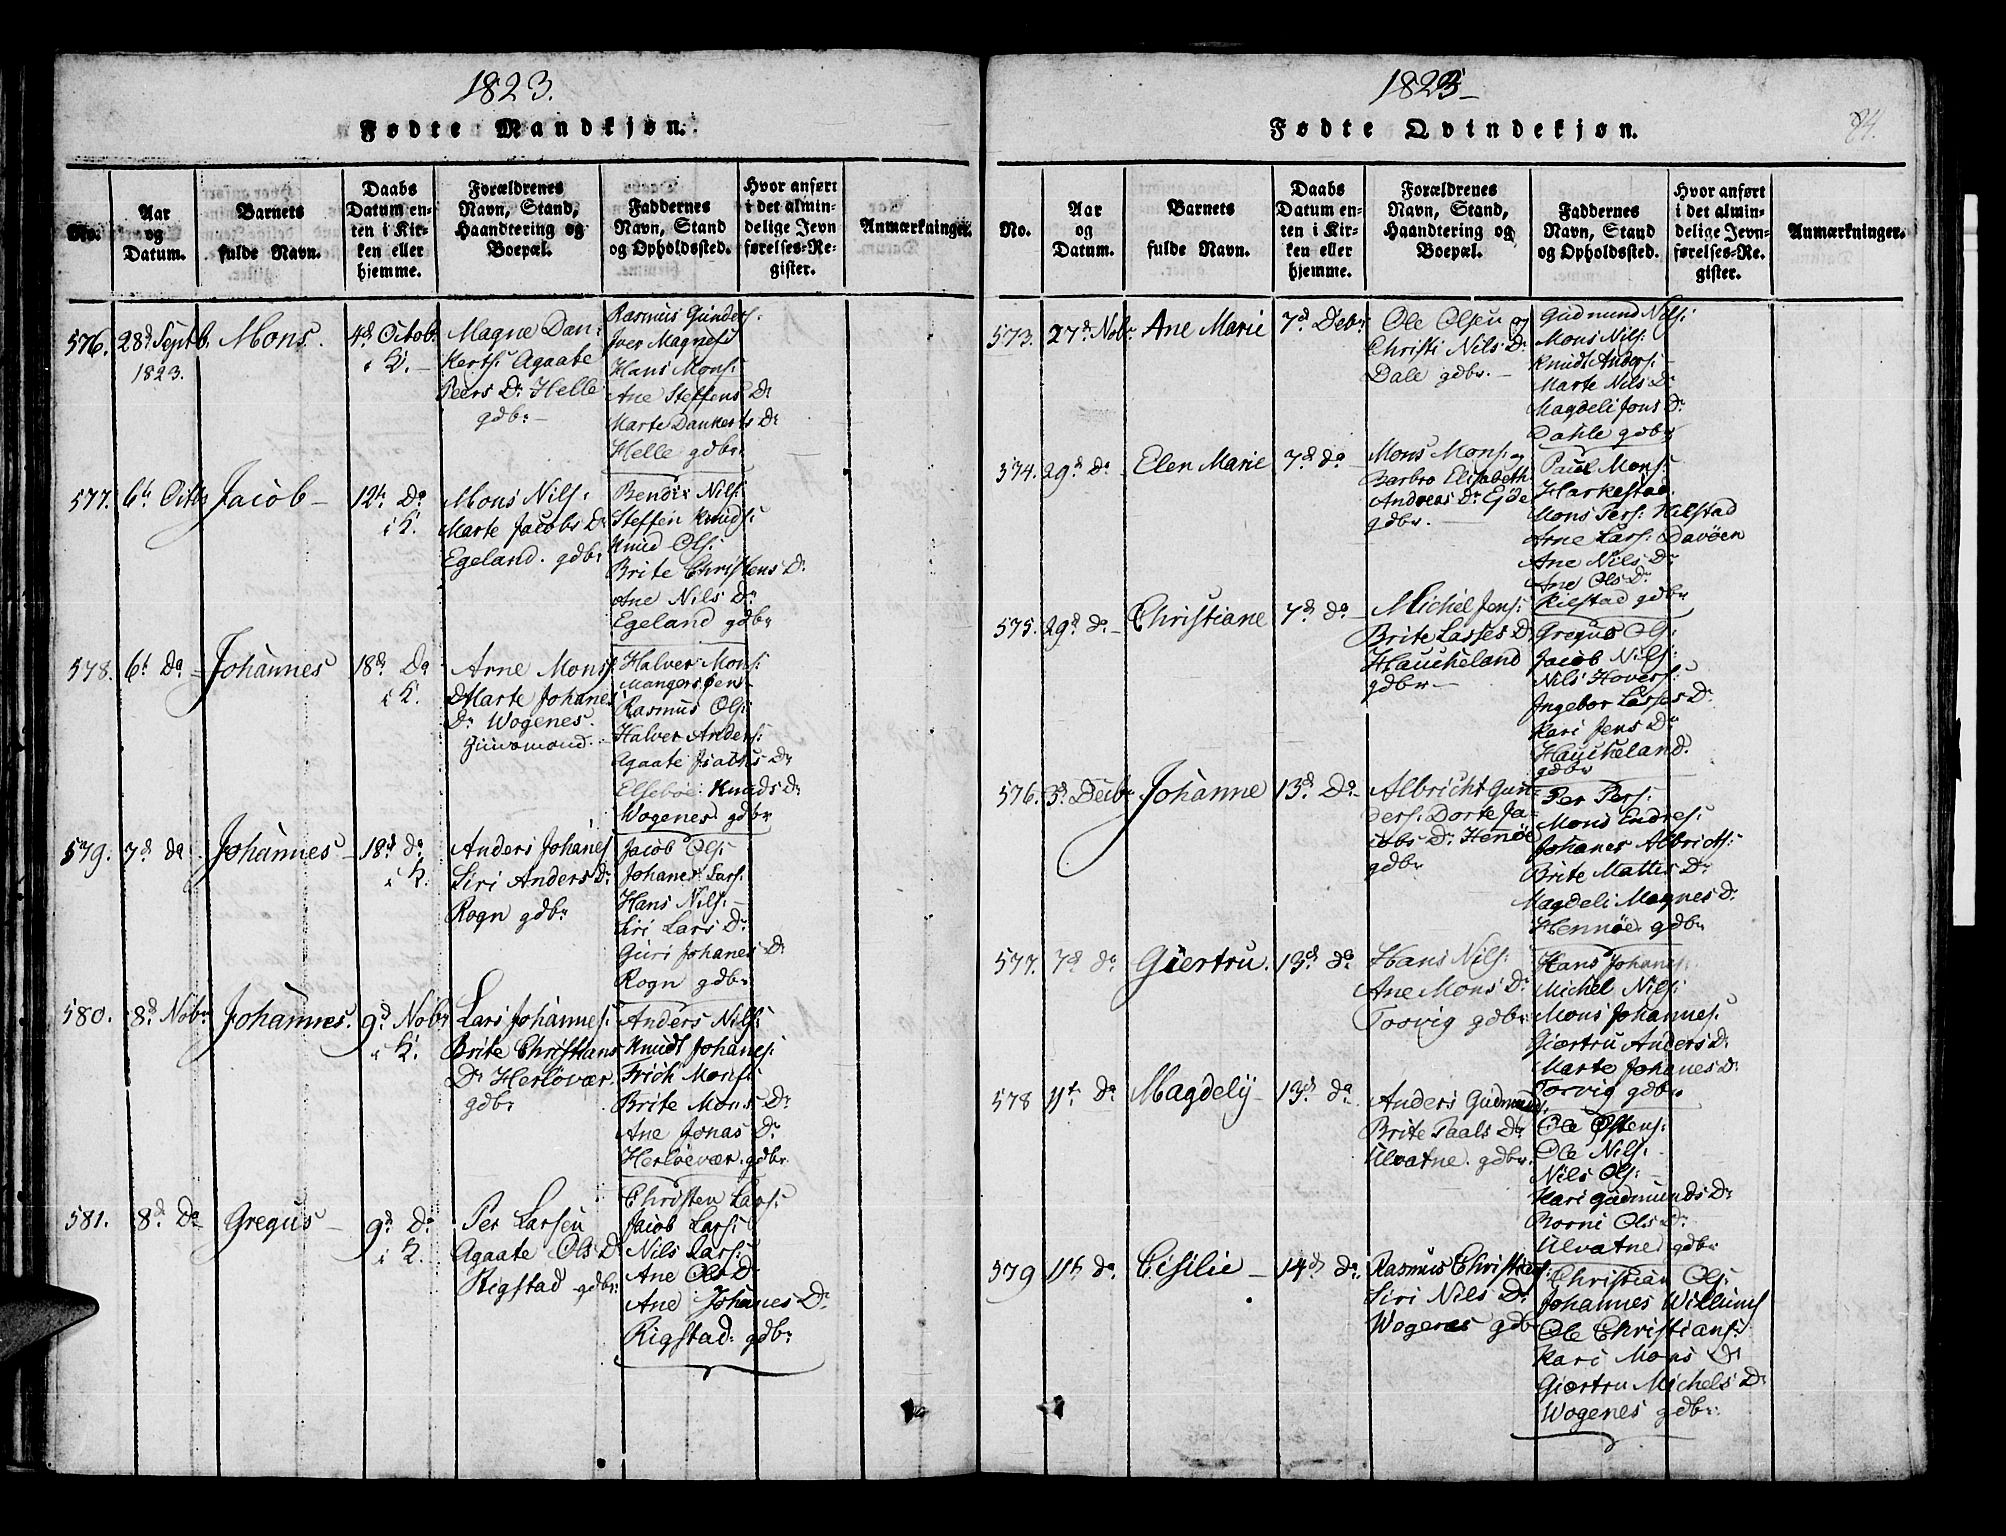 1823.
Fødte Mandkjøn.
No.
Aar
og
Datum.
Barnets
fulde Navn.
Daabs
Datum en-
ten i Kir-
ken eller
hjemme.
Forældrenes
Navn, Stand,
Haandtering og
Boepæl.
Faddernes
Navn, Stand
og Opholdssted.
Hvor anført
i det almin-
delige Jevn
førelses-Re-
gister.
Anmærkninger.
576. 28d Septb. 1823.
Mons.
4d Octob.
i K.
Magne Dan-
kerts: Agaate
Peers Dr Helle
gdbr
Rasmus Gunders:
Iver Magnes:
Hans Mons:
Ane Steffens Dr
Marte Dankerts Dr
Helle gdbr
577. 6te Octbr
Jacob
12te Do
i K.
Mons Nils:
Marte Jacobs Dr
Egeland. gdbr
Bendix Nils:
Steffen Knuds:
Knud Ols:
Brite Christens Dr
Ane Nils Dr
Egeland gdbr
578. 6t do
Johannes
18d Do
i K.
Arne Mons:
Marte Johanes
Dr Wogenes.
Huusmand.
Halver Mons:
Mangersøen
Rasmus Ols:
Halver Anders:
Agaate Jacobs Dr
Elseboe Knuds Dr
Wogenes gdbr
579. 7d do
Johannes
18d do
i K.
Anders Johanes
Siri Anders Dr
Rogn gdbr
Jacob Ols:
Johanes Lars:
Hans Nils:
Siri Lars Dr
Guri Johanes Dr
Rogn gdbr
580. 8d Nobr
Johannes.
9d Nobr
i K.
Lars Johannes:
Brite Christians
Dr Herløvær.
gdbr
Anders Nils:
Knudt Johanes:
Erich Mons:
Brite Mons Dr
Ane Jonas Dr
Herløevær. gdbr
581. 8d Do
Gregus
9d Do
i K.
Per Larsen
Agaate Ols Dr
Rigstad gdbr
Christen Lars:
Jacob Lars:
Nils Lars:
Ane Ols Dr
Ane Johanes Dr
Rigstad. gdbr
1823
84.
Fødte Qvindekjøn.
No.
Aar
og
Datum.
Barnets
fulde Navn.
Daabs
Datum en-
ten i Kir-
ken eller
hjemme.
Forældrenes
Navn, Stand,
Haandtering og
Boepæl.
Faddernes
Navn, Stand
og Opholdssted.
Hvor anført
i det almin-
delige Jevn-
førelses-Re-
gister.
Anmærkninger.
573. 27d Nobr
Ane Marie
7d Debr
Ole Olsen og
Christi Nils Dr
Dale gdbr.
Gudmund Nils:
Mons Nils:
Knudt Anders:
Marte Nils Dr
Magdeli Jons Dr
Dahle gdbr
574. 29d do
Elen Marie
7d do
Mons Mons: og
Barbro Elisabeth
Andreas Dr Eide
gdbr.
Paul Mons:
Harkestad.
Mons Pers: Kilstad
Arne Lars: Davøen
Ane Nils Dr
Ane Ols Dr
Kilstad gdbr
575. 29d do
Christiane
7d do
Michel Jens:
Brite Lasses Dr
Hauckeland
gdbr
Gregus Ols:
Jacob Nils:
Nils Hovers:
Ingebor Lasses Dr
Kari Jens Dr
Hauckeland.
gdbr
576. 3d Decbr
Johanne
13d Do
Albricht Gun-
ders: Dorte Ja-
cobs Dr Henøe
gdbr
Per Pers:
Mons Endres:
Johanes Albricts:
Brite Mattis Dr
Magdeli Magnes Dr
Hennøe gdbr
577. 7d do
Giertru.
13d do
Hans Nils:
Ane Mons Dr
Torvig gdbr
Hans Johanes:
Michel Nils:
Mons Johannes:
Giertru Anders Dr
Marte Johanes Dr
Torvig gdbr
578 11te do
Magdely
13d do
Anders Gudmunds:
Brite Paals Dr
Ulvatne. gdbr.
Ole Ostens:
Ole Nils:
Nils Ols:
Kari Gudmunds Dr
Borni Ols Dr
Ulvatne gdbr
579 11te do
Cisilie
14d do.
Rasmus Christens:
Siri Nils Dr
Wogenes gdbr
Christian Ols:
Johannes Willums
Ole Christians:
Kari Mons Dr
Giertru Michels Dr
Wogenes gdbr.